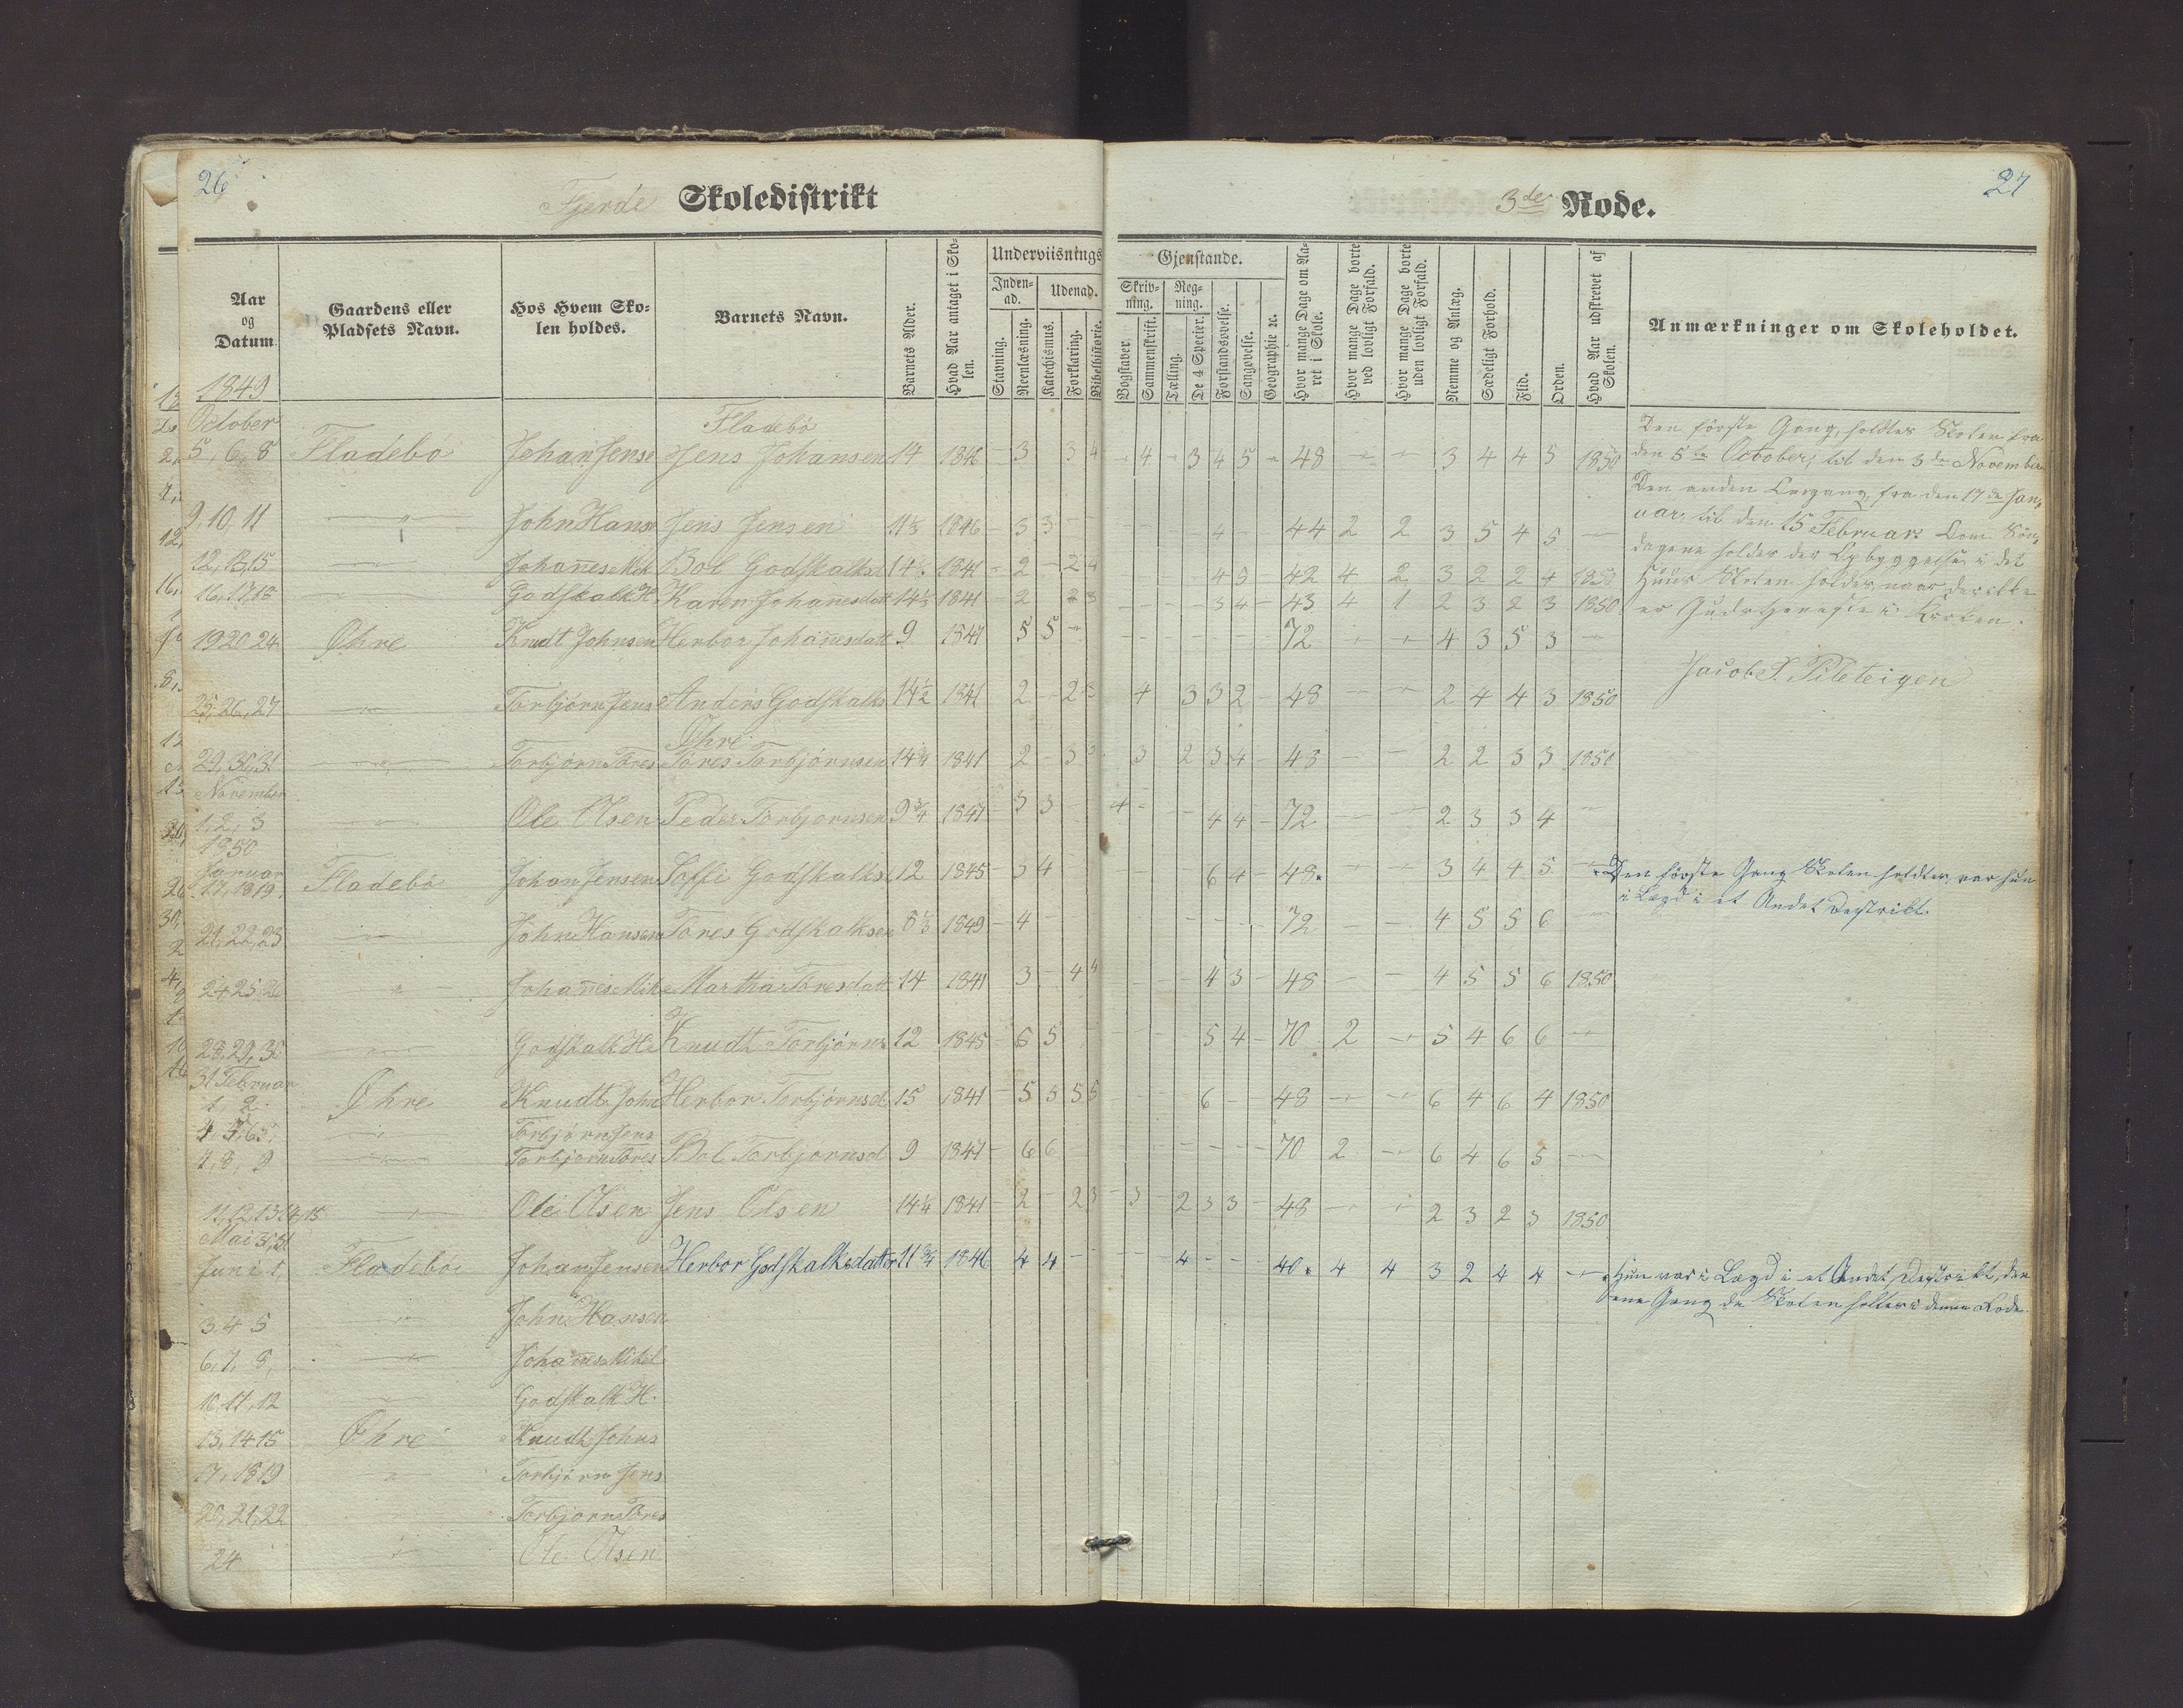 26
Fjerde Skoledistrikt
27
3de Rode.
Aar og Datum
Gaardens eller Pladsets Navn.
Hos Hvem Skolen holdes.
Barnets Navn.
Barnets Alder.
Hvad Aar antaget i Skolen.
Underviisnings Gjenstande.
Inden-ad.
Udenad.
Skriv-ning.
Reg-ning.
Stavning.
Reenlæsning.
Katechismus.
Forklaring.
Bibelhistorie.
Bogstaver.
Sammenskrift.
Tælling.
De 4 Specier.
Forstandsøvelse.
Sangøvelse.
Geographie ic.
Hvor mange Dage om Aaret i Skole.
Hvor mange Dage borte ved lovligt Forfald.
Hvor mange Dage borte uden lovligt Forfald.
Nemme og Anlæg.
Sædeligt Forhold.
Flid.
Orden.
Hvad Aar udskrevet af Skolen.
Anmærkninger om Skoleholdet.
1849
October
Fladebö
5, 6, 8 Fladebö Johan Jense Jens Johansen 14 1846 - 3 3 4 - 4 - 3 4 5 - 48 - - 3 4 4 5 1850
9, 10, 11 - " - John Hans Jens Jensen 11 1/3 1846 - 3 3 - 4 - 44 2 2 3 5 4 5 -
12, 13, 15 - " - Johañes Mik Bol Godskalksd 14 1841 - 2 - 2 4 4 5 - 42 4 2 3 2 2 4 1850
16, 17, 18 - " - Godskalk H. Karen Johanesdatt 14 1/2 1841 - 2 2 3 3 4 - 43 4 1 2 3 2 3 1850
19 20 24 Öhre Knudt Johnsen Herbor Johañesdatt 9 1847 5 5 - 72 - - 4 3 5 3 -
25, 26, 27 - " - Torbjörn Jens Anders Godskalks 14 1/2 1841 2 - 2 3 4 3 3 2 - 48 - - 2 4 4 3 1850
Öhre
29, 30, 31 - " - Torbjörn Tores Tores Torbjörnsen 14 1/4 1841 2 - 3 3 3 2 3 4 - 48 - - 2 2 3 3 1850
November
1, 2, 3 - " - Ole Olsen Peder Torbjörnsen 9 3/4 1847 - 3 3 - 4 - 4 4 - 72 - - 2 3 3 4 -
1850
Januar
17, 18 19, Fladebö Johan Jensen Soffi Godskalksd 12 1845 - 3 4 6 4 - 48. - - 3 4 4 5 -
21, 22, 23 - " - John Hansen Tores Godskalksen 8 1/2 1849 - 4 - 72 - - 4 5 5 6 -
24 25 26 - " - Johañes Mik Martha Toresdatt 14 1841 3 - 4 4 4 3 - 48 - - 4 5 5 6 1850
28, 29, 30 - " - Godskalk H Knudt Torbjörns 12 1845 - 6 5 5 4 - 70 2 - 5 4 6 6 -
31 Februar
1, 2 Öhre Knudt John Herbor Torbjörnsd 15 1841 - 5 5 5 5 6 - 48 - - 6 4 6 4 1850
4, 5, 6 - " - Torbjörn Jens
7, 8, 9 - " - Torbjörn Tores Bol Torbjörnsd 9 1847 - 6 6 - 70 2 - 6 4 6 5 -
11, 12, 13 14, 15 - " - Ole Olsen Jens Olsen 14 1/4 1841 - 2 - 2 3 - 3 - 2 3 3 - 48 - - 2 3 2 3 1850
Mai 30, 31
Juni 1, Fladebö Johan Jensen Herbor Godskalksdatter 11 3/4 1846 4 4 - 4 - 40. 4 4 3 2 4 4 -
3 4 5 - " - John Hansen
6, 7, 8, - " - Johañes Mikel
10 11, 12 - " - Godskalk H.
13, 14 15 Öhre Knudt Johns
17, 18 19 - " - Torbjörn Jens
20, 21, 22 - " - Torbjörn Tores
24 - " - Ole Olsen
Den förste Gang, holdtes Skolen fra
den 5te October, til den 3de November
Den anden Omgang, fra den 17de Jan-
uar, til den 15 Februar Om Sön-
dagene holdes der Opbyggelse i det
Huus Skolen holdes, naar der ikke
er Gudstjeneste i Kirken.
Jacob S. Pileteigen
Den förste Gang Skolen holdtes, var hun
i Lægd i et Andet Destrikt.
Hun var i Lægd i et Andet Destrikt, den
ene Gang da Skolen holtes i denne Rode